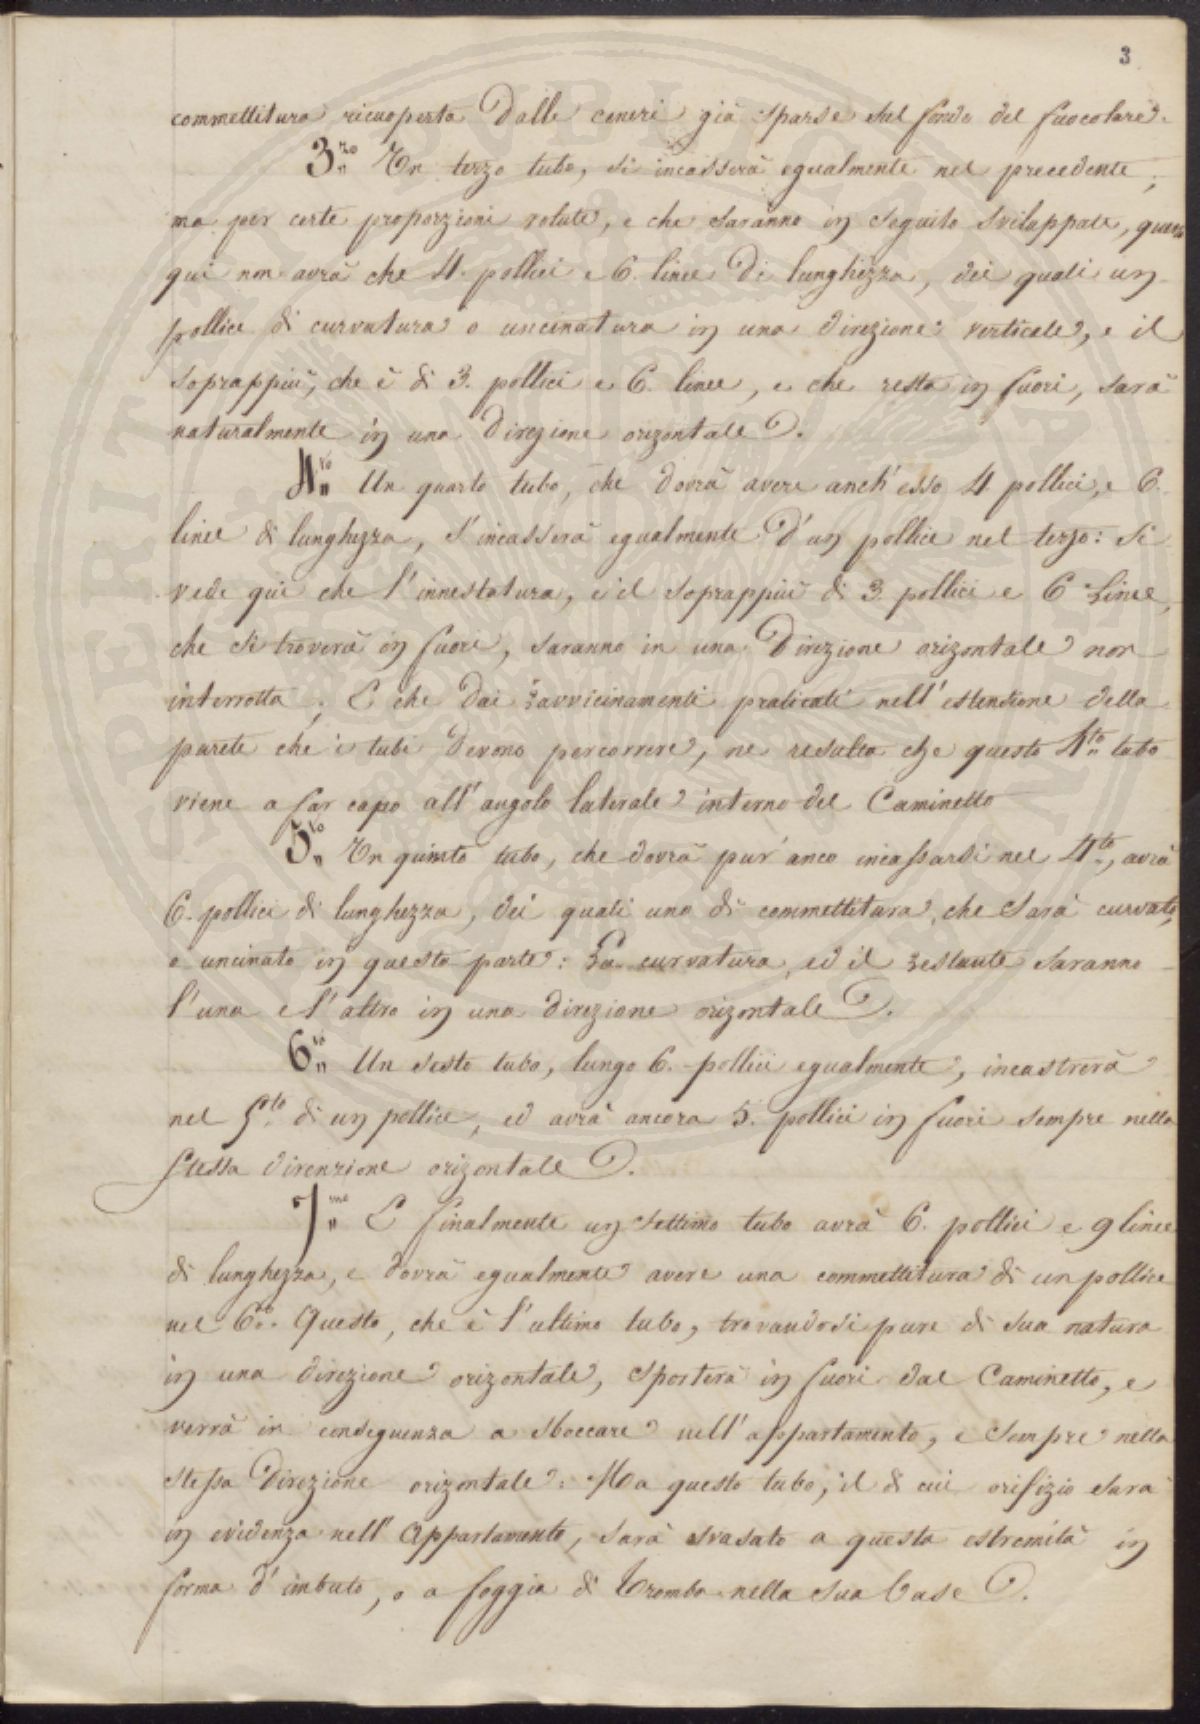 3
commettitura ricuoperta dalle ceneri già sparse sul fondo del fuocolare.
3.zo Un terzo tubo, si incasserà egualmente nel precedente,
ma per certe proporzioni volute, e che saranno in seguito sviluppate, questo
qui non avrà che 4. pollici e 6. linee di lunghezza, dei quali un
pollice di curvatura o uncinatura in una direzione verticale, e il
soprappiù, che è di 3. pollici e 6. linee, e che resta in fuori, sarà
naturalmente in una direzione orizontale.
4.to Un quarto tubo, che dovrà avere anch'esso 4 pollici, e 6.
linee di lunghezza, s'incasserà egualmente d'un pollice nel terzo: Si
vede qui che l'innestatura, e il soprappiù di 3. pollici e 6 Linee,
che si troverà in fuori, saranno in una Direzione orizontale non
interrotta; E che dai ravvicinamenti praticati nell'estensione della
parete che i tubi devono percorrere, ne resulta che questo 4.to tubo
viene a far capo all'angolo laterale interno del Caminetto
5.to Un quinto tubo, che dovrà pur'anco incassarsi nel 4.to, avrà
6. pollici di lunghezza, dei quali uno di commettitura, che sarà curvato,
o uncinato in questa parte: La curvatura, ed il restante saranno
l'una e l'altro in una direzione orizontale.
6.to Un sesto tubo, lungo 6. pollici egualmente, incastrerà
nel 5.to di un pollice, ed avrà ancora 5. pollici in fuori sempre nella
stessa direnzione orizontale.
7.mo E finalmente un settimo tubo avrà 6. pollici e 9 linee
di lunghezza, e dovrà egualmente avere una commettitura di un pollice
nel 6.to Questo, che è l'ultimo tubo, trovandosi pure di sua natura
in una direzione orizontale, sporterà in fuori dal Caminetto, e
verrà in conseguenza a sboccare nell'appartamento, e sempre nella
stessa Direzione orizontale: Ma questo tubo, il di cui orifizio sarà
in evidenza nell'Appartamento, sarà svasato a questa estremità in
forma d'imbuto, o a foggia di Tromba nella sua base.